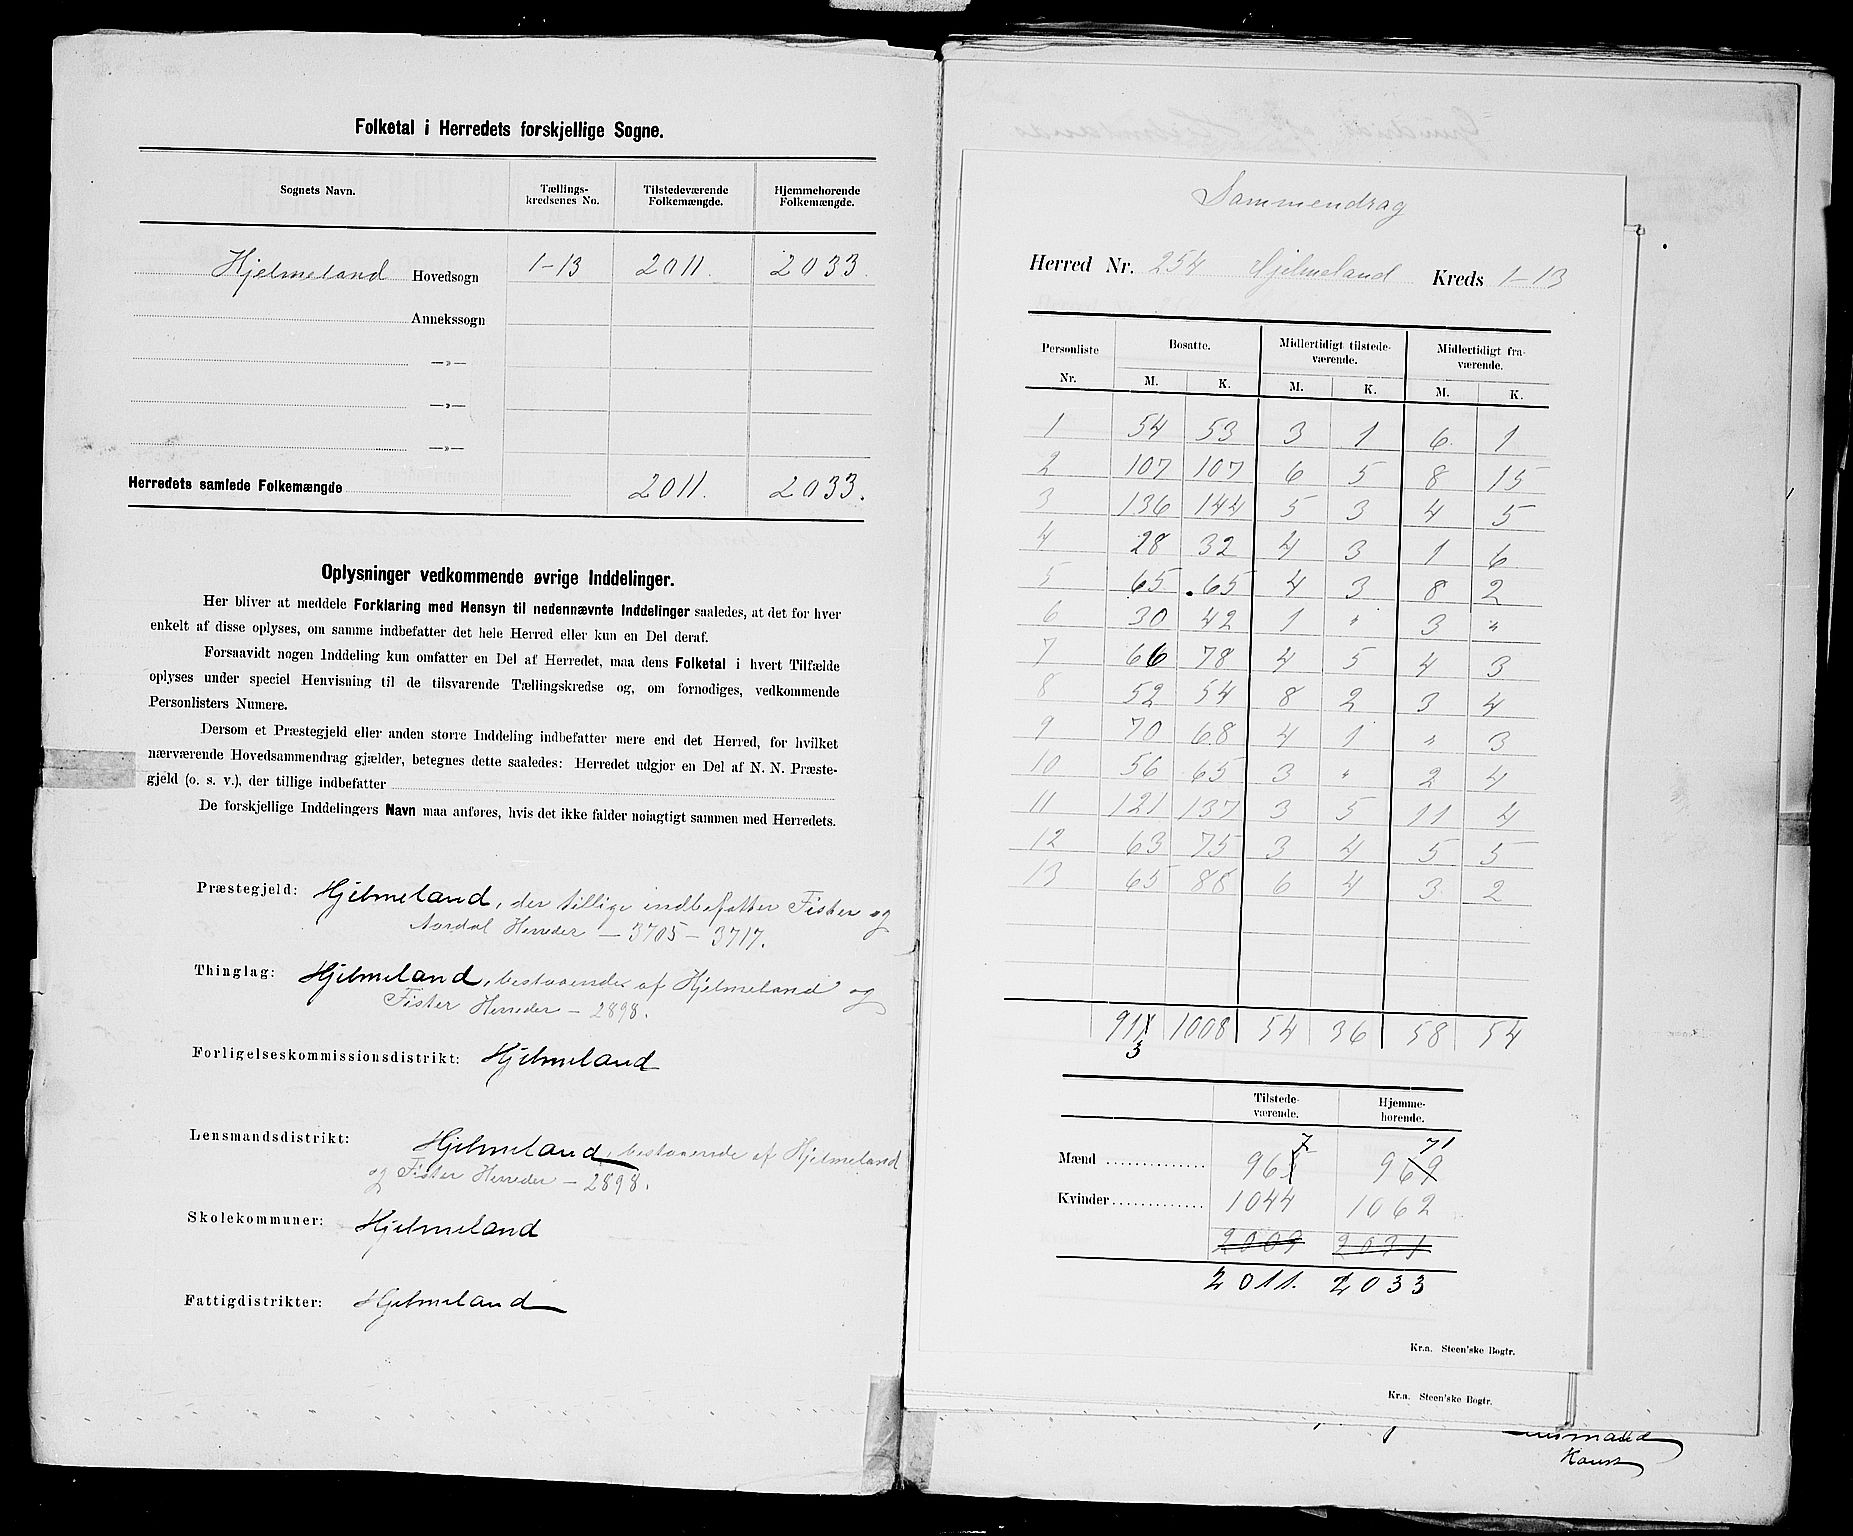 Folketal i Herredets forskjellige Sogne.
Sognets Navn. Tællings-kredsenes No. Tilstedeværende Folkemængde. Hjemmehørende Folkemængde.
Hjelmeland Hovedsogn 1-13 2011. 2033.
Annekssogn
—„—
—„—
—„—
Herredets samlede Folkemængde 2011. 2033.
Oplysninger vedkommende øvrige Inddelinger.
Her bliver at meddele Forklaring med Hensyn til nedennævnte Inddelinger saaledes, at det for hver
enkelt af disse oplyses, om samme indbefatter det hele Herred eller kun en Del deraf.
Forsaavidt nogen Inddeling kun omfatter en Del af Herredet, maa dens Folketal i hvert Tilfælde
oplyses under speciel Henvisning til de tilsvarende Tællingskredse og, om fornødiges, vedkommende
Personlisters Numere.
Dersom et Præstegjeld eller anden større Inddeling indbefatter mere end det Herred, for hvilket
nærværende Hovedsammendrag gjælder, betegnes dette saaledes: Herredet udgjør en Del af N. N. Præste-
gjeld (o. s. v.), der tillige indbefatter
De forskjellige Inddelingers Navn maa anføres, hvis det ikke falder nøiagtigt sammen med Herredets.
Præstegjeld: Hjelmeland, der tillige indbefatter Fister og
Aardal Herreder — 3705 — 3717.
Thinglag: Hjelmeland, bestaaende af Hjelmeland og
Fister Herreder — 2898.
Forligelseskommissionsdistrikt: Hjelmeland
Lensmandsdistrikt: Hjelmeland, bestaaende af Hjelmeland
og Fister Herreder — 2898.
Skolekommuner: Hjelmeland
Fattigdistrikter: Hjelmeland
Sammendrag
Herred Nr. 254 Hjelmeland Kreds 1-13
Personliste Nr. Bosatte. Midlertidigt tilstede-værende. Midlertidigt fra-værende.
M. K. M. K. M. K.
1 54 53 3 1 6 1
2 107 107 6 5 8 15
3 136 144 5 3 4 5
4 28 32 4 3 1 6
5 65 65 4 3 8 2
6 30 42 1 „ 3 „
7 66 78 4 5 4 3
8 52 54 8 2 3 4
9 70 68 4 1 „ 3
10 56 65 3 „ 2 4
11 121 137 3 5 11 4
12 63 75 3 4 5 5
13 65 88 6 4 3 2
911 1008 54 36 58 54
3
Tilstede-værende. Hjemme-hørende.
7 71
Mænd 965 969
Kvinder 1044 1062
2009 2031
2011. 2033
Kr.a. Steen'ske Bogtr.
Kr.a. Steen'ske Bogtr.